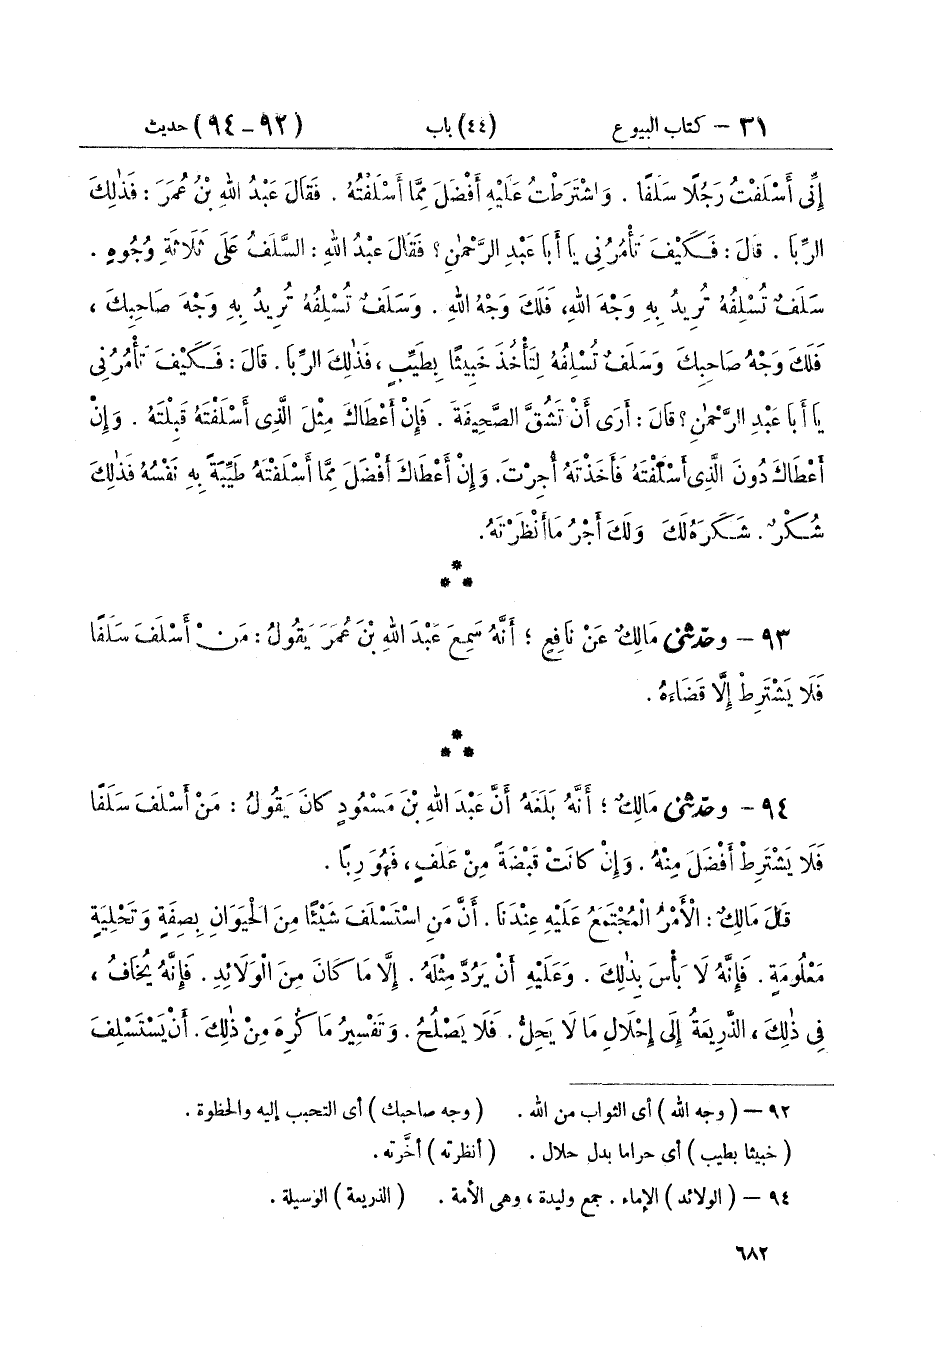 ٣١ – كتاب البيوع (٤٤) باب (٩٢ – ٩٤) حديث
إِنِّى أَسْلَفْتُ رَجُلًا سَلَفًا . وَاشْتَرَطْتُ عَلَيْهِ أَفْضَلَ مِمَّا أَسْلَفْتُهُ . فَقَالَ عَبْدُ اللهِ بْنُ عُمَرَ : فَذٰلِكَ
الرِّبَا . قَالَ : فَكَيْفَ تَأْمُرُنِى يَا أَبَا عَبْدِ الرَّحْمٰنِ ؟ فَقَالَ عَبْدُ اللهِ : السَّلَفُ عَلَى ثَلَاثَةِ وُجُوهٍ .
سَلَفٌ تُسْلِفُهُ تُرِيدُ بِهِ وَجْهَ اللهِ، فَلَكَ وَجْهُ اللهِ . وَسَلَفٌ تُسْلِفُهُ تُرِيدُ بِهِ وَجْهَ صَاحِبِكَ ،
فَلَكَ وَجْهُ صَاحِبِكَ وَسَلَفٌ تُسْلِفُهُ لِتَأْخُذَ خَبِيثًا بِطَيِّبٍ ، فَذٰلِكَ الرِّبَا . قَالَ : فَكَيْفَ تَأْمُرُنِى
يَا أَبَا عَبْدِ الرَّحْمٰنِ ؟ قَالَ : أَرَى أَنْ تَشُقَّ الصَّحِيفَةَ . فَإِنْ أَعْطَاكَ مِثْلَ الَّذِى أَسْلَفْتَهُ قَبِلْتَهُ . وَإِنْ
أَعْطَاكَ دُونَ الَّذِى أَسْلَفْتَهُ فَأَخَذْتَهُ أُجِرْتَ. وَإِنْ أَعْطَاكَ أَفْضَلَ مِمَّا أَسْلَفْتَهُ طَيِّبَةً بِهِ نَفْسُهُ فَذٰلِكَ
شُكْرٌ . شَكَرَهُ لَكَ وَلَكَ أَجْرُ مَا أَنْظَرْتَهُ.
***
٩٣ – وحدّثنى مَالِكٌ عَنْ نَافِعٍ ؛ أَنَّهُ سَمِعَ عَبْدَ اللهِ بْنَ عُمَرَ يَقُولُ : مَنْ أَسْلَفَ سَلَفًا
فَلَا يَشْتَرِطْ إِلَّا قَضَاءَهُ .
***
٩٤ – وحدّثنى مَالِكٌ ؛ أَنَّهُ بَلَغَهُ أَنَّ عَبْدَ اللهِ بْنَ مَسْعُودٍ كَانَ يَقُولُ : مَنْ أَسْلَفَ سَلَفًا
فَلَا يَشْتَرِطْ أَفْضَلَ مِنْهُ . وَإِنْ كَانَتْ قَبْضَةً مِنْ عَلَفٍ ، فَهُوَ رِبًا .
قَالَ مَالِكٌ : الْأَمْرُ الْمُجْتَمَعُ عَلَيْهِ عِنْدَنَا . أَنَّ مَنِ اسْتَسْلَفَ شَيْئًا مِنَ الْحَيَوَانِ بِصِفَةٍ وَتَحْلِيَةٍ
مَعْلُومَةٍ . فَإِنَّهُ لَا بَأْسَ بِذٰلِكَ . وَعَلَيْهِ أَنْ يَرُدَّ مِثْلَهُ . إِلَّا مَا كَانَ مِنَ الْوَلَائِدِ . فَإِنَّهُ يُخَافُ ،
فِى ذٰلِكَ ، الذَّرِيعَةُ إِلَى إِحْلَالِ مَا لَا يَحِلُّ . فَلَا يَصْلُحُ . وَتَفْسِيرُ مَا كُرِهَ مِنْ ذٰلِكَ. أَنْ يَسْتَسْلِفَ
٩٢ – ( وجه الله ) أى الثواب من الله . ( وجه صاحبك ) أى التحبب إليه والحظوة .
( خبيثا بطيب ) أى حراما بدل حلال . ( أنظرته ) أخَّرته .
٩٤ – ( الولائد ) الإماء . جمع وليدة ، وهى الأمة . ( الذريعة ) الوسيلة .
٦٨٢